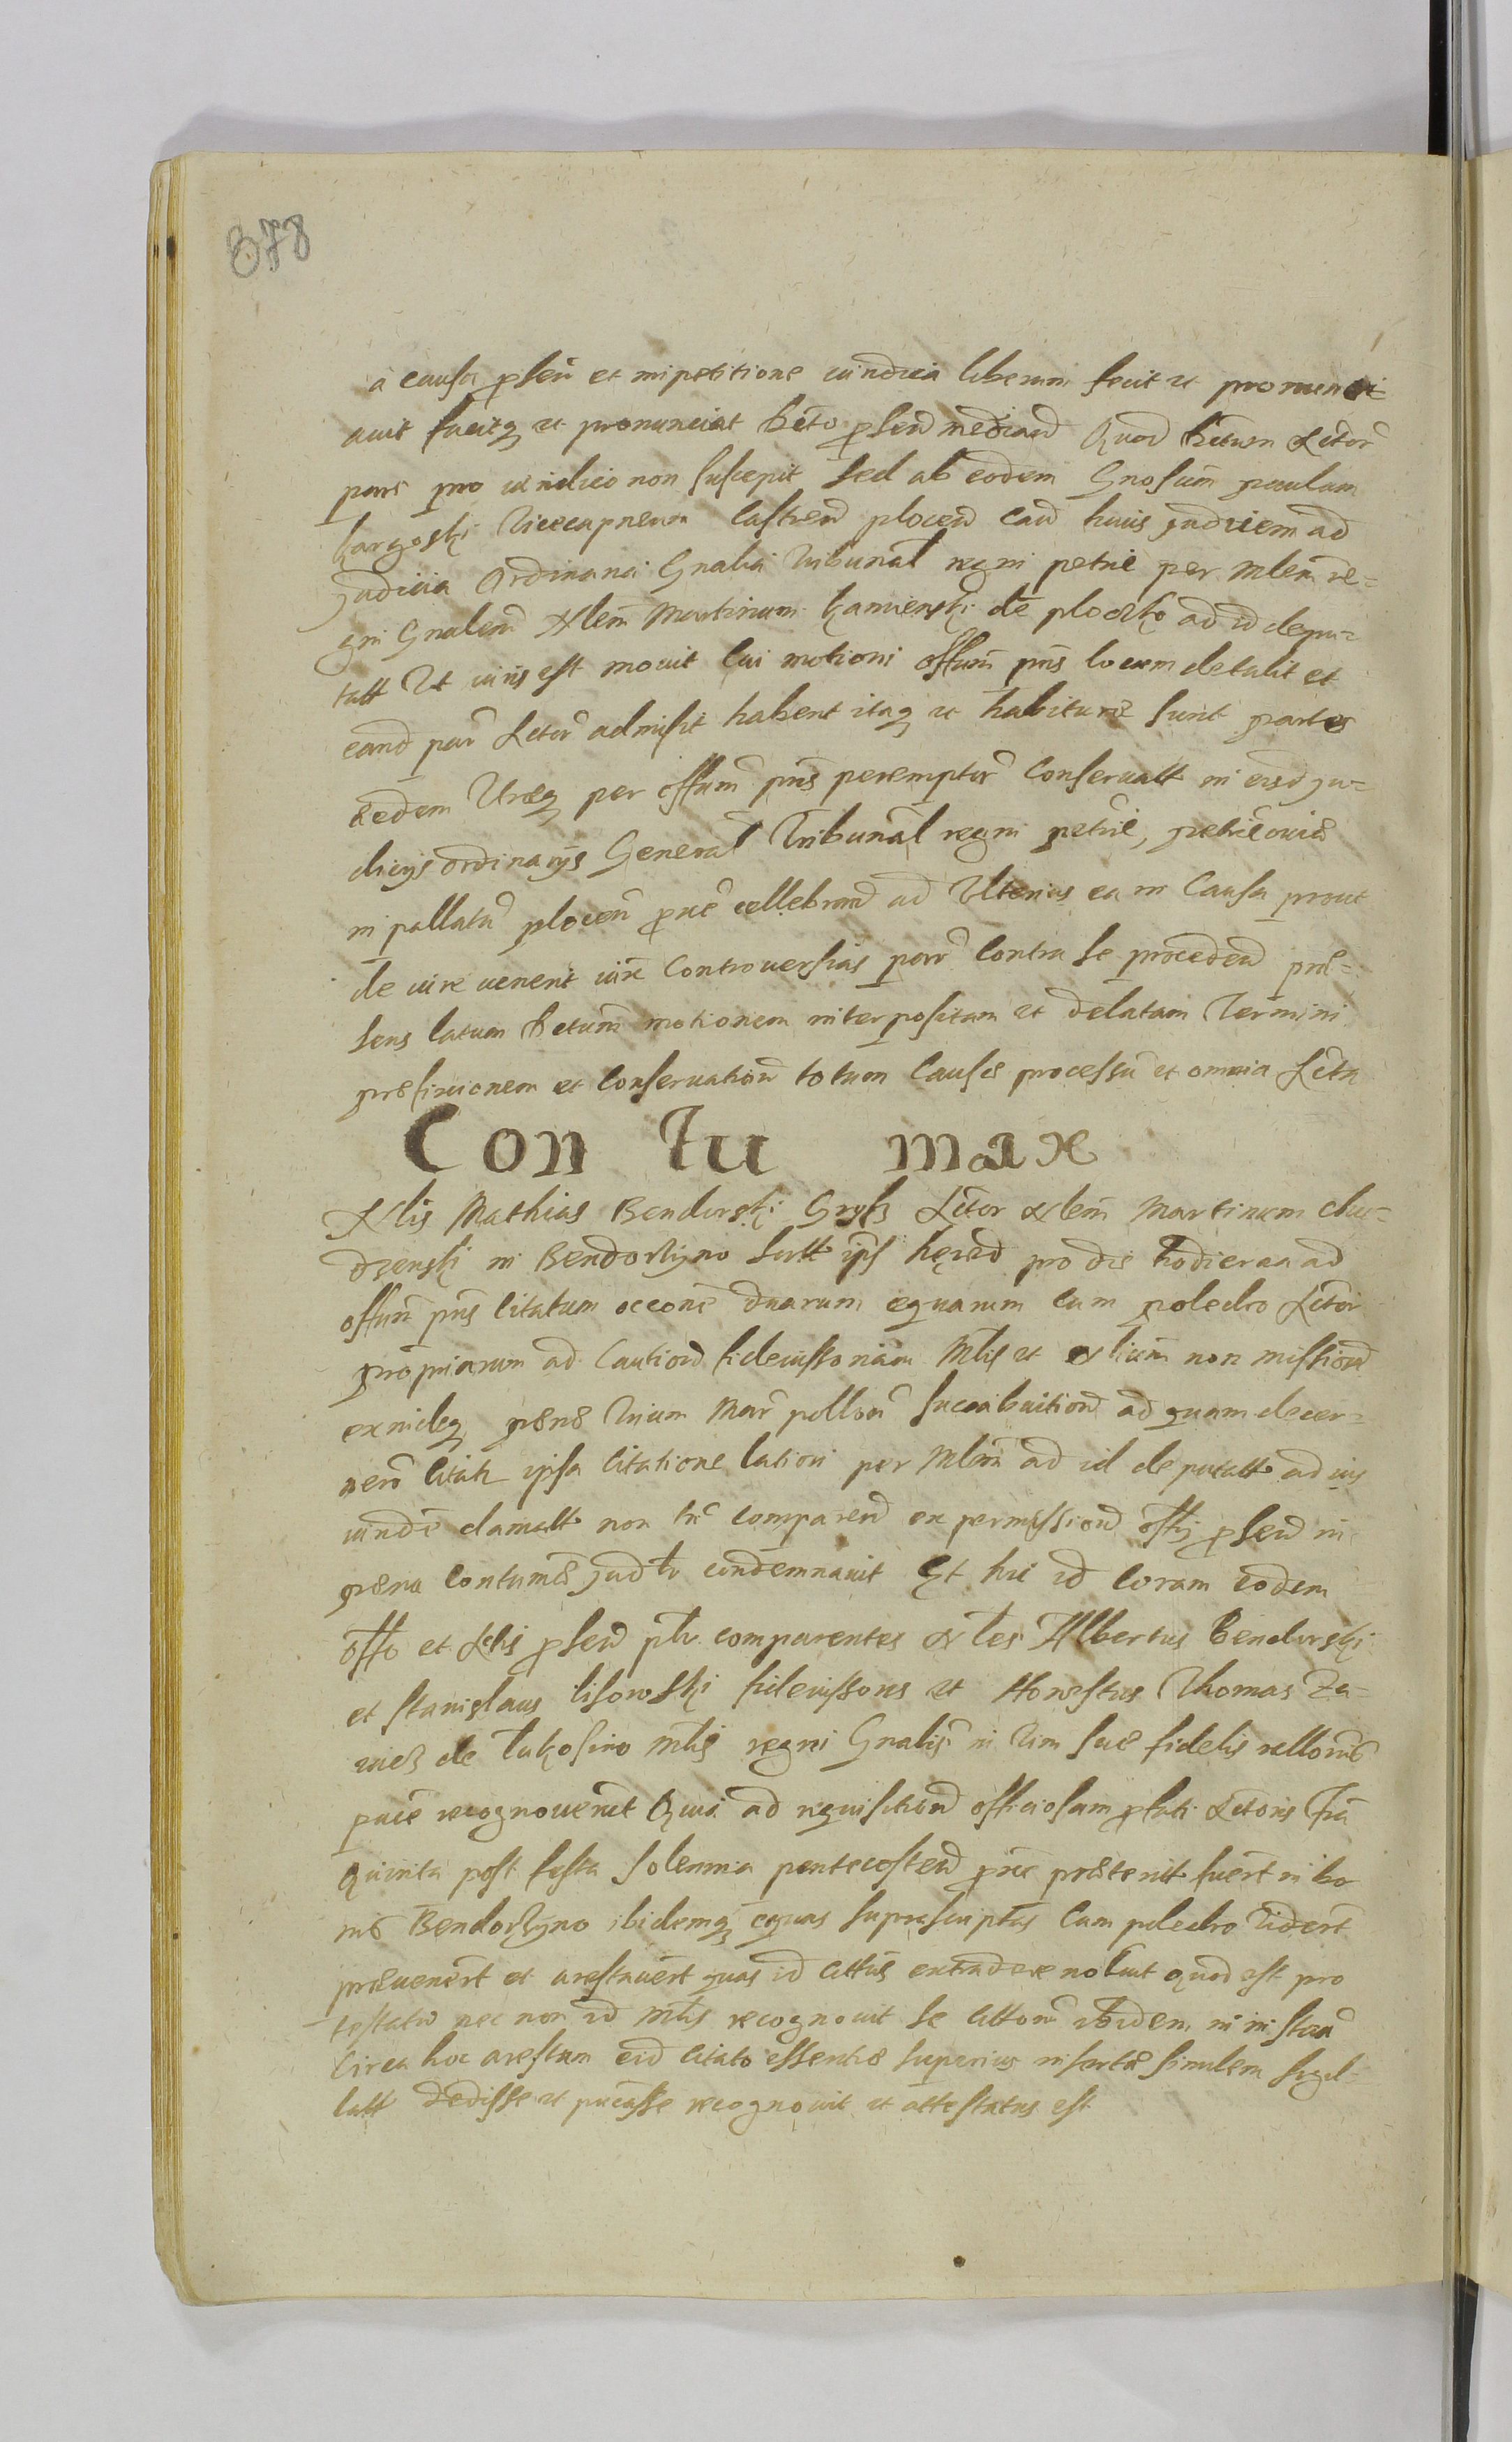 878
a causa p̱señ et impetitione iuridica liberum fecit et pronunci-
auit facitq et pronunciat Scto p̱send mediand Quod Sctum Actor
pars pro iuridico non suscepit sed ab eodem Gnosum paulum
kargoski Vicecapneum Castrend plocend eand huis Judicem ad
Judicia Ordinaria Gnalia Tribunal regni petric per Mlem re-
gni Gnalem Nlem Martinum kamienski de ploczko ad id depu-
tatt Ut iuris est mouit Cui motioni offum pns locum detulit et
eand par Actor admisit habent itaq et habiture sunt partes
eedem Utreq per offum pns peremptor Conseruatt in eisd Ju-
dicijs ordinarijs General Tribunal regni petric, petricouie
in pallatu plocen p̱xe cellebrand ad Ulterius ea in Causa prout
de iure uenerit iure Controuersias par Contra se procedend præ-
sens latum Sctum motionem interpositam et delatam Termini
præfixionem et Conseruation totum Causæ processu et omnia Acta
Con tu max
Nlis Mathias Bendorski Gryz Actor Nlem Martinum chu-
dzenski in Bendorzyno Sortt ips hered pro die hodierna ad
offum pns Citatum occone duarum equarum Cum poledro Actor
propriarum ad Cautiond fideiussoriam Mlis et Nlium non missiond
exindeq pænæ trium Mar pollon succubuitiond ad quam decer-
nend Citatt ipsa Citatione latiori per Mlem ad id deputatt ad ius
iuridice clamatt non tn comparend ex permissiond offij p̱send in
pæna Contumæ Judtr condemnauit Et hic id Coram eodem
offo et Actis p̱send ptr comparentes Nles Albertus Bendorski
et Stanislaus lisowski fideiussores et Honestus Thomas Za-
wiez de lukosino Mlis regni Gnalis in Vim suæ fidelis rellonis
puce recognouerunt Quia ad requisitiond officiosam p̱fati Actoris fria
Quinta post festa Solennia pentecosten p̱xe præteritt fuert in bo
nis Bendorzyno ibidemq equas suprascriptas Cum poledro Vidert
præuenert et arestauert quas id Cittus extradere noluit quod est pro
testatus nec non id Mlis recognouit se Cittom ibidem in instan
Circa hoc arestum eid Citato essentiæ superius insertæ similem sigil-
latt dedisse et pucasse recognouit et attestatus est